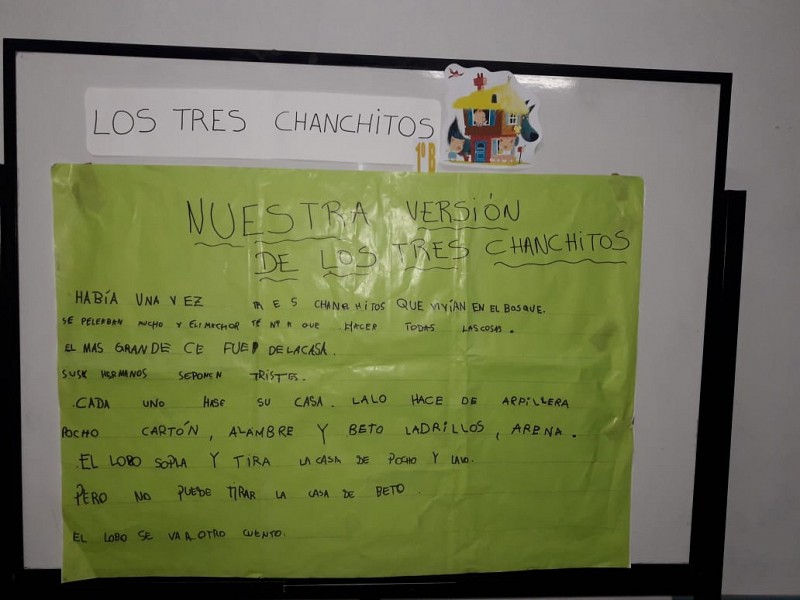 LOS TRES CHANCHITOS
1º B
NUESTRA VERSIÓN
DE LOS TRES CHANCHITOS
HABÍA UNA VEZ TRES CHANCHITOS QUE VIVÍAN EN EL BOSQUE.
SE PELEABAN MUCHO Y EL MACHOR TENIA QUE HACER TODAS LAS COSAS.
EL MAS GRANDE CE FUE DE LACASA.
SUSK HERMANOS SEPONEN TRISTES.
.CADA UNO HASE SU CASA. LALO HACE DE ARPILLERA
POCHO CARTÓN, ALAMBRE Y BETO LADRILLOS, ARENA.
.EL LOBO SOPLA Y TIRA LA CASA DE POCHO Y LALO.
PERO NO PUEDE TIRAR LA CASA DE BETO.
EL LOBO SE VA A OTRO CUENTO.